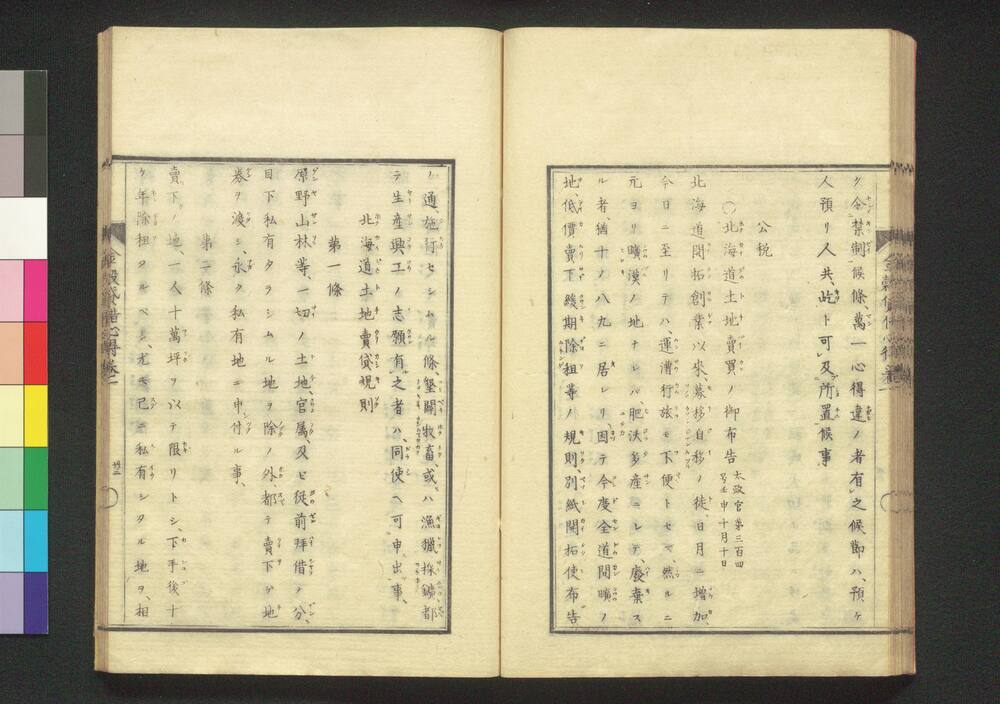 ク令禁制候條、萬一心得違ノ者有之候節ハ、預ケ
人預リ人共、屹ト可及所置候事
公税
○北海道土地賣買ノ御布告 太政官第三百四
号壬申十月十日
北海道開拓創業以來、募移自移ノ徒、日月ニ増加、
今日ニ至リテハ、運漕行旅モ不便トセズ、然ルニ
元ヨリ曠漠ノ地ナレバ、肥沃多産ニシテ、廢棄ス
ル者、猶十ノ八九ニ居レリ、因テ今度全道間曠ノ
地、低價賣下、緩期除租等ノ規則、別紙開拓使布告
ノ通、施行セシムル條、墾開牧畜、或ハ漁獵採鑛都
テ生産興工ノ志願有之者ハ、同使ヘ可申出事、
北海道土地賣貸規則
第一條
原野山林等、一切ノ土地、官属、及ビ従前拜借ノ分、
目下私有タラシムル地ヲ除ノ外、都テ賣下ゲ地
券ヲ渡シ、永ク私有地ニ申付ル事、
第二條
賣下ノ地、一人十萬坪ヲ以テ限リトシ、下手後十
ケ年除租タルベシ、尤モ己ニ私有シタル地ヲ、相